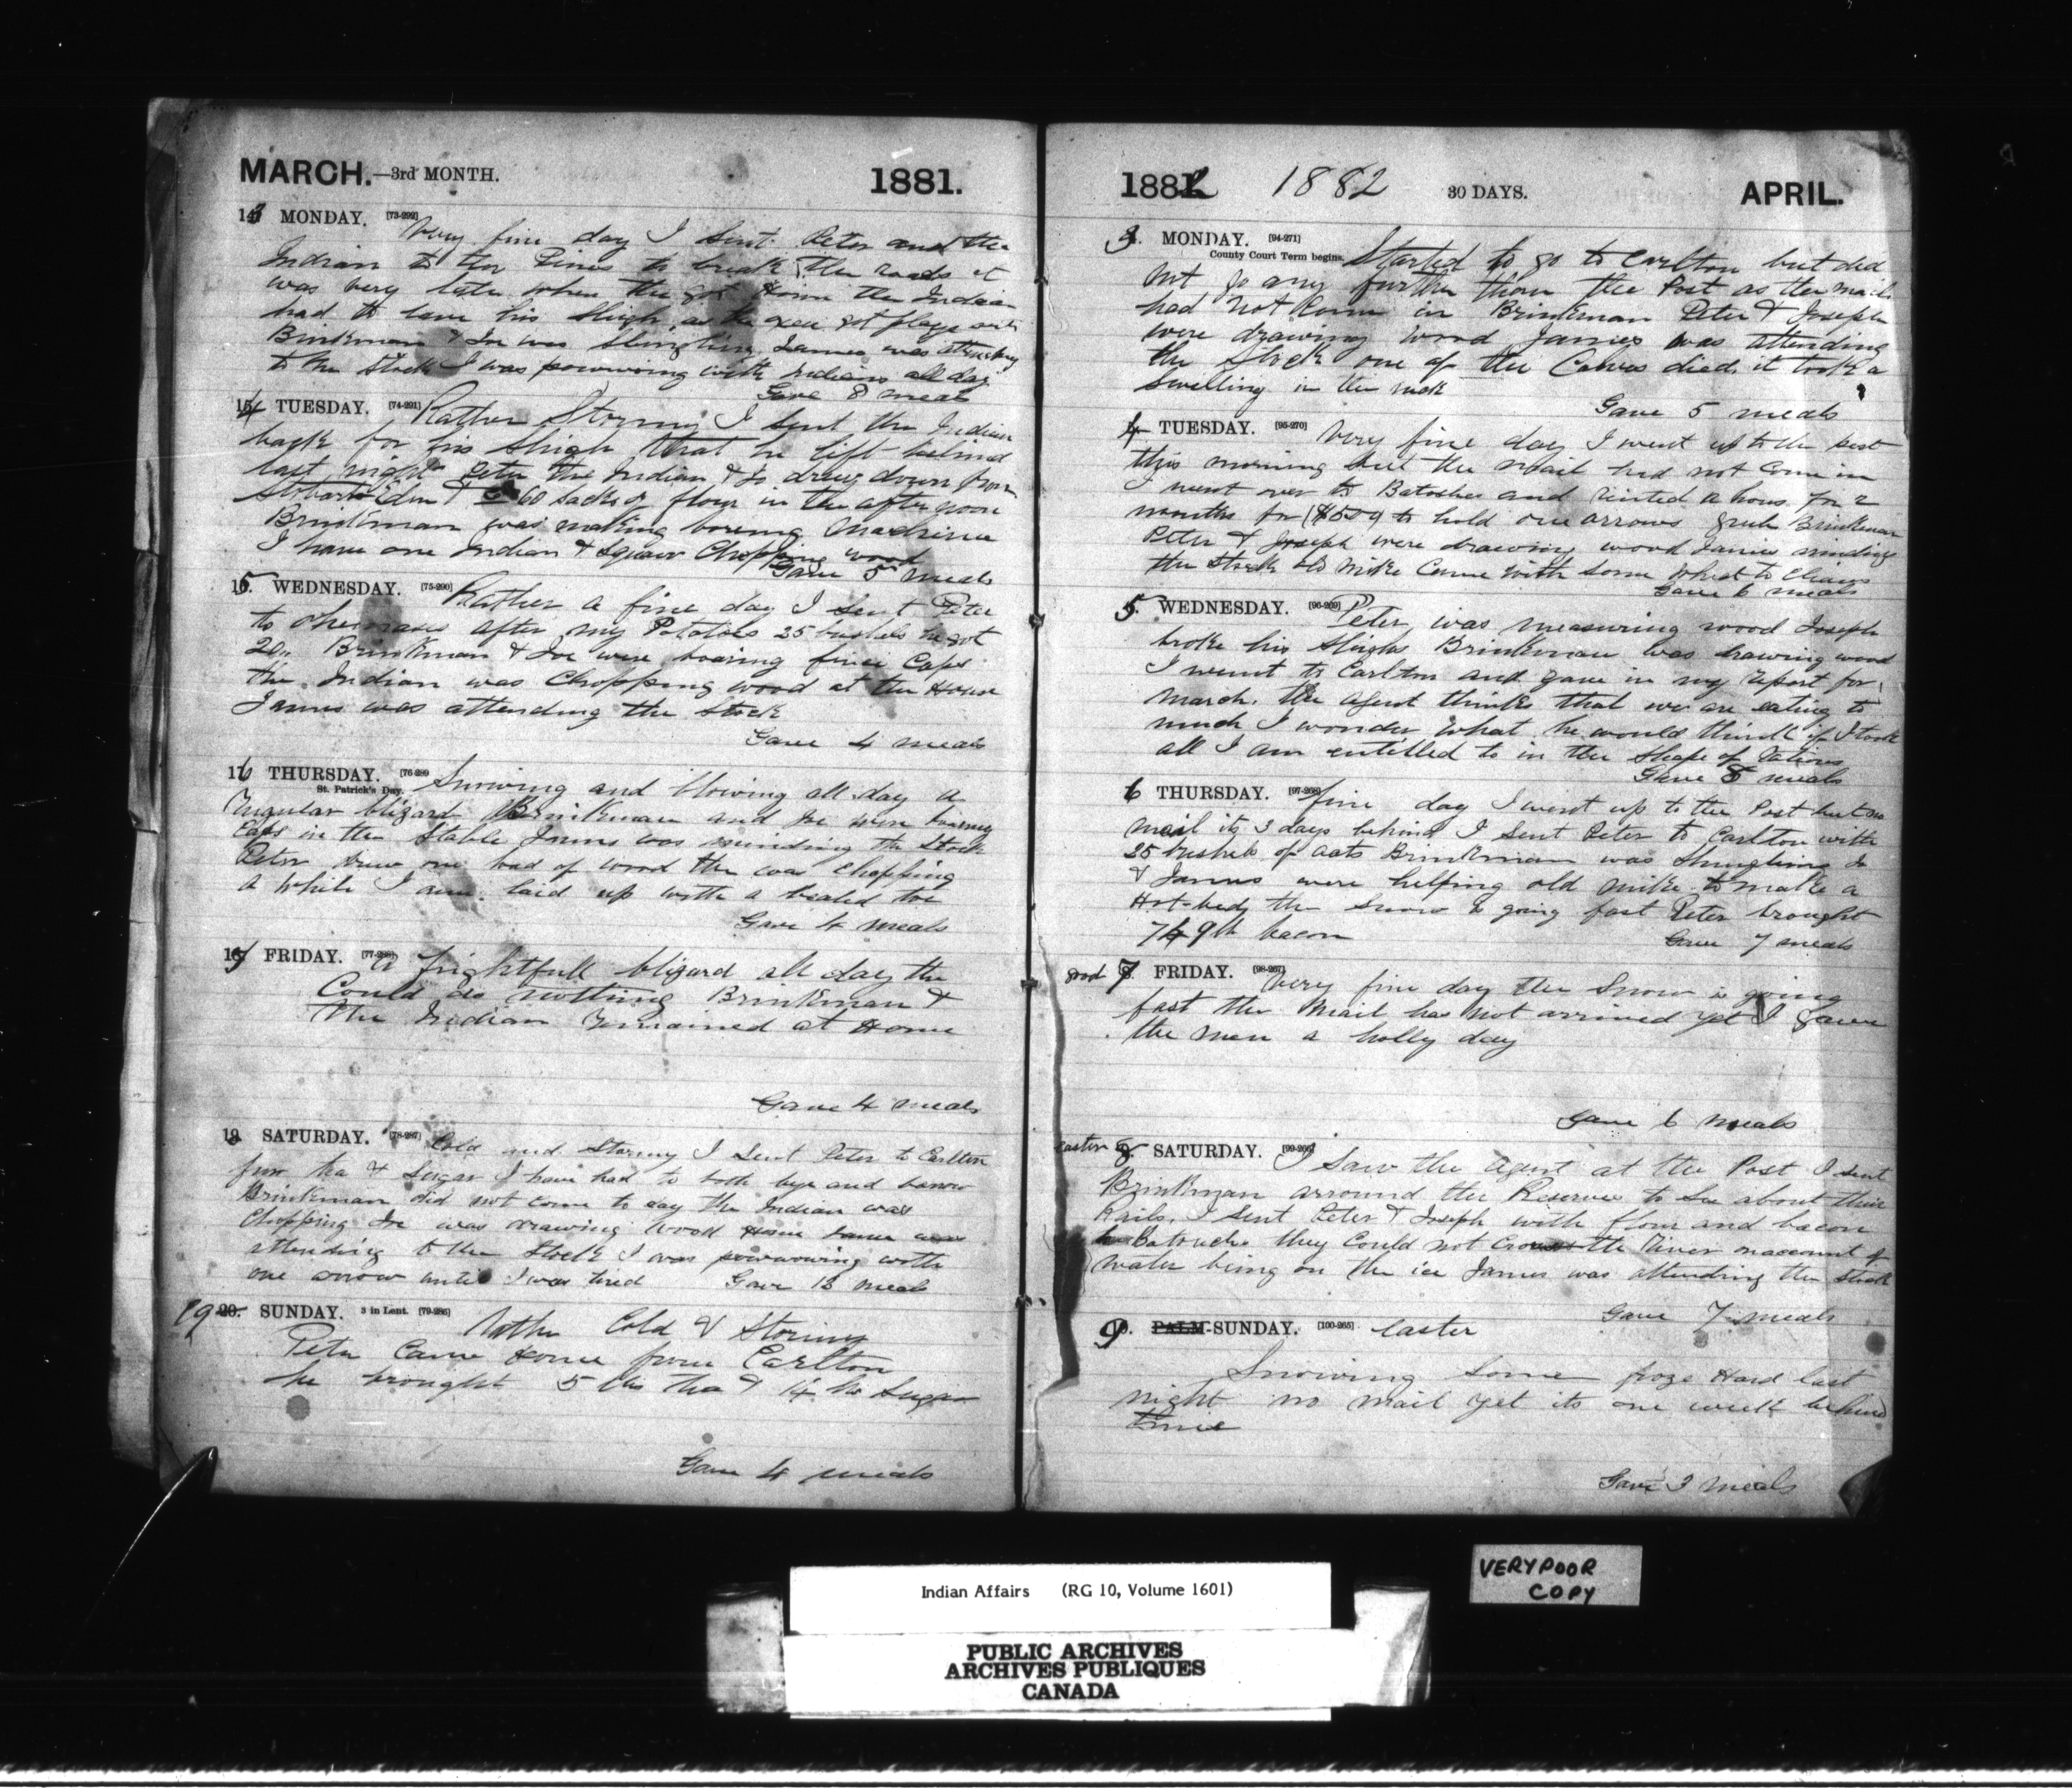 MARCH.—3rd MONTH. 1881.
13 MONDAY. [73-292] Very fine day I sent Peter and the
Indian to the Pines to break the roads it
was very late when the got Home the Indian
had to leave his sleigh, as the oxen got
Brinkman & Joe was Shingling James was attending
to the Stock I was powwowing with Indians all day
Gave 8 meals
14 TUESDAY. [74-291] Rather Stormy I sent the Indian
back for his sleigh that he left behind
last night Peter the Indian & Jo drew down from
Stobart Eden & Co 60 sacks of flour in the afternoon
Brinkman was making boreing Machine
I have one Indian & Squaw Chopping wood
Gave 5 meals
15 WEDNESDAY. [75-290] Rather a fine day I sent Peter
to after my Potatoes 25 bushels he got
20. Brinkman & Joe were boaring fince Caps
the Indian was Chopping wood at the House
James was attending the Stock
Gave 4 meals
16 THURSDAY. [76-289
St. Patrick's Day. Snowing and blowing all day a
regular blizard Brinkman and Joe were boaring
Caps in the Stable James was minding the Stock
Peter drew one load of wood then was Chopping
a while I am laid up with a bealed toe
Gave 4 meals
17 FRIDAY. [77-288] A frightfull blizard all day the
Could do nothing Brinkman &
the Indian remained at Home
Gave 4 meals
18 SATURDAY. [78-287] Cold and Stormy I Sent Peter to Carlton
for tea & Sugar I have had to both bye and borrow
Brinkman did not come to day the Indian was
Chopping Joe was drawing wood Home James was
attending to the Stock I was powwowing with
one arrow until I was tired Gave 13 meals
19 20. SUNDAY. 3 in Lent. [79-286]
Rather Cold & Stormy
Peter Came Home from Carlton
he brought 5 lbs tea & 14 lbs Sugar
Gave 4 meals
1882 1882 30 DAYS. APRIL.
3. MONDAY. [94-271]
County Court Term begins. Started to go to Carlton but did
not go any further than the Post as the mail
had not Come in Brinkman Peter & Joseph
were drawing wood James was attending
the Stock one of the Calves died. it took a
swelling in the neck
Gave 5 meals
4 TUESDAY. [95-270] Very fine day I went up to the post
this morning but the mail had not Come in
I went over to Batoshes and rinted a hous for 2
months for ($5.00) to hold one arrows grub Brinkman
Peter & Joseph were drawing wood James minding
the Stock old Mike Came with some wheat to Clean
Gave 6 meals
5. WEDNESDAY. [96-269] Peter was measuring wood Joseph
broke his Sleighs Brinkman was drawing wood
I went to Carlton and gave in my report for
March. the Agent thinks that we are eating to
much I wonder what he would think if I took
all I am entitled to in the Shape of Rations
Gave 8 meals
6 THURSDAY. [97-268] fine day I went up to the Post but no
mail its 3 days behind I sent Peter to Carlton with
25 bushels of oats Brinkman was Shingling Jo
& James were helping old Mike to make a
Hot-bed, the Snow is going fast Peter brought
749 lb bacon
Gave 7 meals
good 7 FRIDAY. [98-267] Very fine day the Snow is going
fast the Mail has not arrived yet I gave
the men a holly day
Gave 6 meals
easter 8 SATURDAY. [99-266] I Saw the agent at the Post I sent
Brinkman arround the Reserves to See about their
Rails. I sent Peter & Joseph with flour and bacon
to Batouche they Could not Cross the River on account of
water being on the ice James was attending the Stock
Gave 7 meals
9. PALM-SUNDAY. [100-265] Easter
Snowing Some froze Hard last
night no mail yet its one week behind
time
Gave 3 meals
VERY POOR
COPY
Indian Affairs (RG 10, Volume 1601)
PUBLIC ARCHIVES
ARCHIVES PUBLIQUES
CANADA